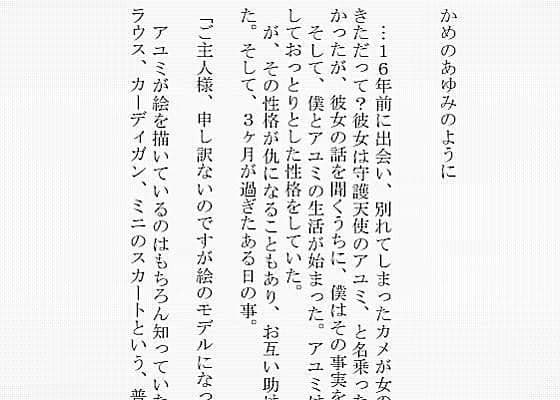 かめのあゆみのように
…16年前に出会い、別れてしまったカメが女の
きただって？彼女は守護天使のアユミ、と名乗った
かったが、彼女の話を聞くうちに、僕はその事実を
そして、僕とアユミの生活が始まった。アユミは
しておっとりとした性格をしていた。
が、その性格が仇になることもあり、お互い助け
た。そして、３ヶ月が過ぎたある日の事。
「ご主人様、申し訳ないのですが絵のモデルになっ
アユミが絵を描いているのはもちろん知っていた
ラウス、カーディガン、ミニのスカートという、普